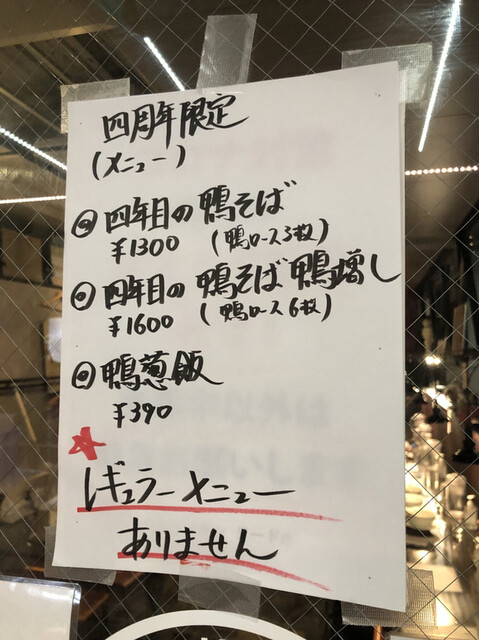 四周年限定
(メニュー)
◎ 四年目の鴨そば
¥1300 (鴨ロース3枚)
◎ 四年目の鴨そば 鴨増し
¥1600 (鴨ロース6枚)
◎ 鴨葱飯
¥390
☆
レギュラーメニュー
ありません